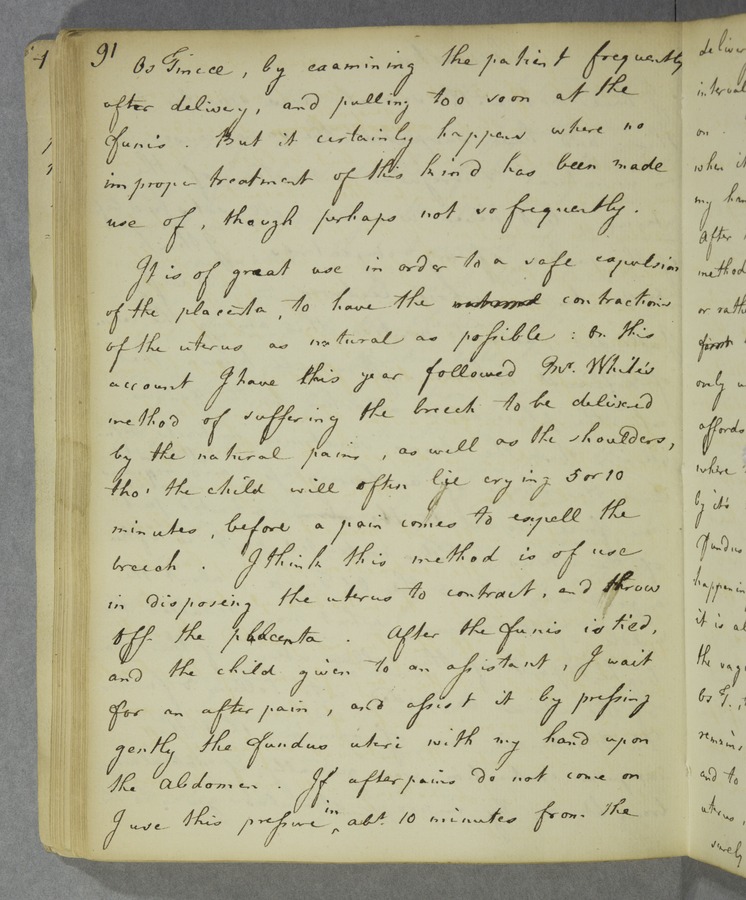 91
Os Tincae, by examining the patient frequently
after delivery, and pulling too soon at the
funis. But it certainly happens where no
improper treatment of this kind has been made
use of, though perhaps not so frequently.
It is of great use in order to a safe expulsion
of the placenta, to have the contractions
of the uterus as natural as possible: On this
account I have this year followed Mr. White's
method of suffering the breech to be delivered
by the natural pains, as well as the shoulders,
tho' the child will often lye crying 5 or 10
minutes, before a pain comes to expell the
breech. I think this method is of use
in disposing the uterus to contract, and throw
off the placenta. After the funis is tied,
and the child given to an assistant, I wait
for an after pain, and assist it by pressing
gently the fundus uteri with my hand upon
the abdomen. If after pains do not come on
I use this pressure in abt. 10 minutes from the
deliver
interval
on.
when it
my han
After
method
or rath
first
only
affords
where
by it's
Fundus
happenin
it is al
the vag
Os T.,
remains
and to
uterus,
surely